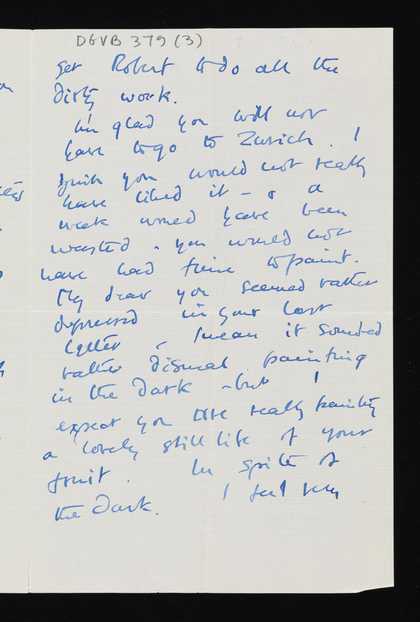 DGVB 379 (3)
get Robert to do all the
dirty work.
I'm glad you will not
have to go to Zurich. I
think you would not really
have liked it – & a
week would have been
wasted. you would not
have had time to paint.
My dear you seemed rather
depressed in your last
letter, I mean it sounded
rather dismal painting
in the dark – but I
expect you are really painting
a lovely still life of your
fruit. In spite of
the dark. I feel very